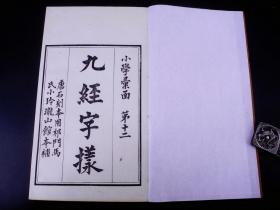 小學彙函 第十二
九經字樣
唐石刻本用祁門馬
氏小玲瓏山館本補